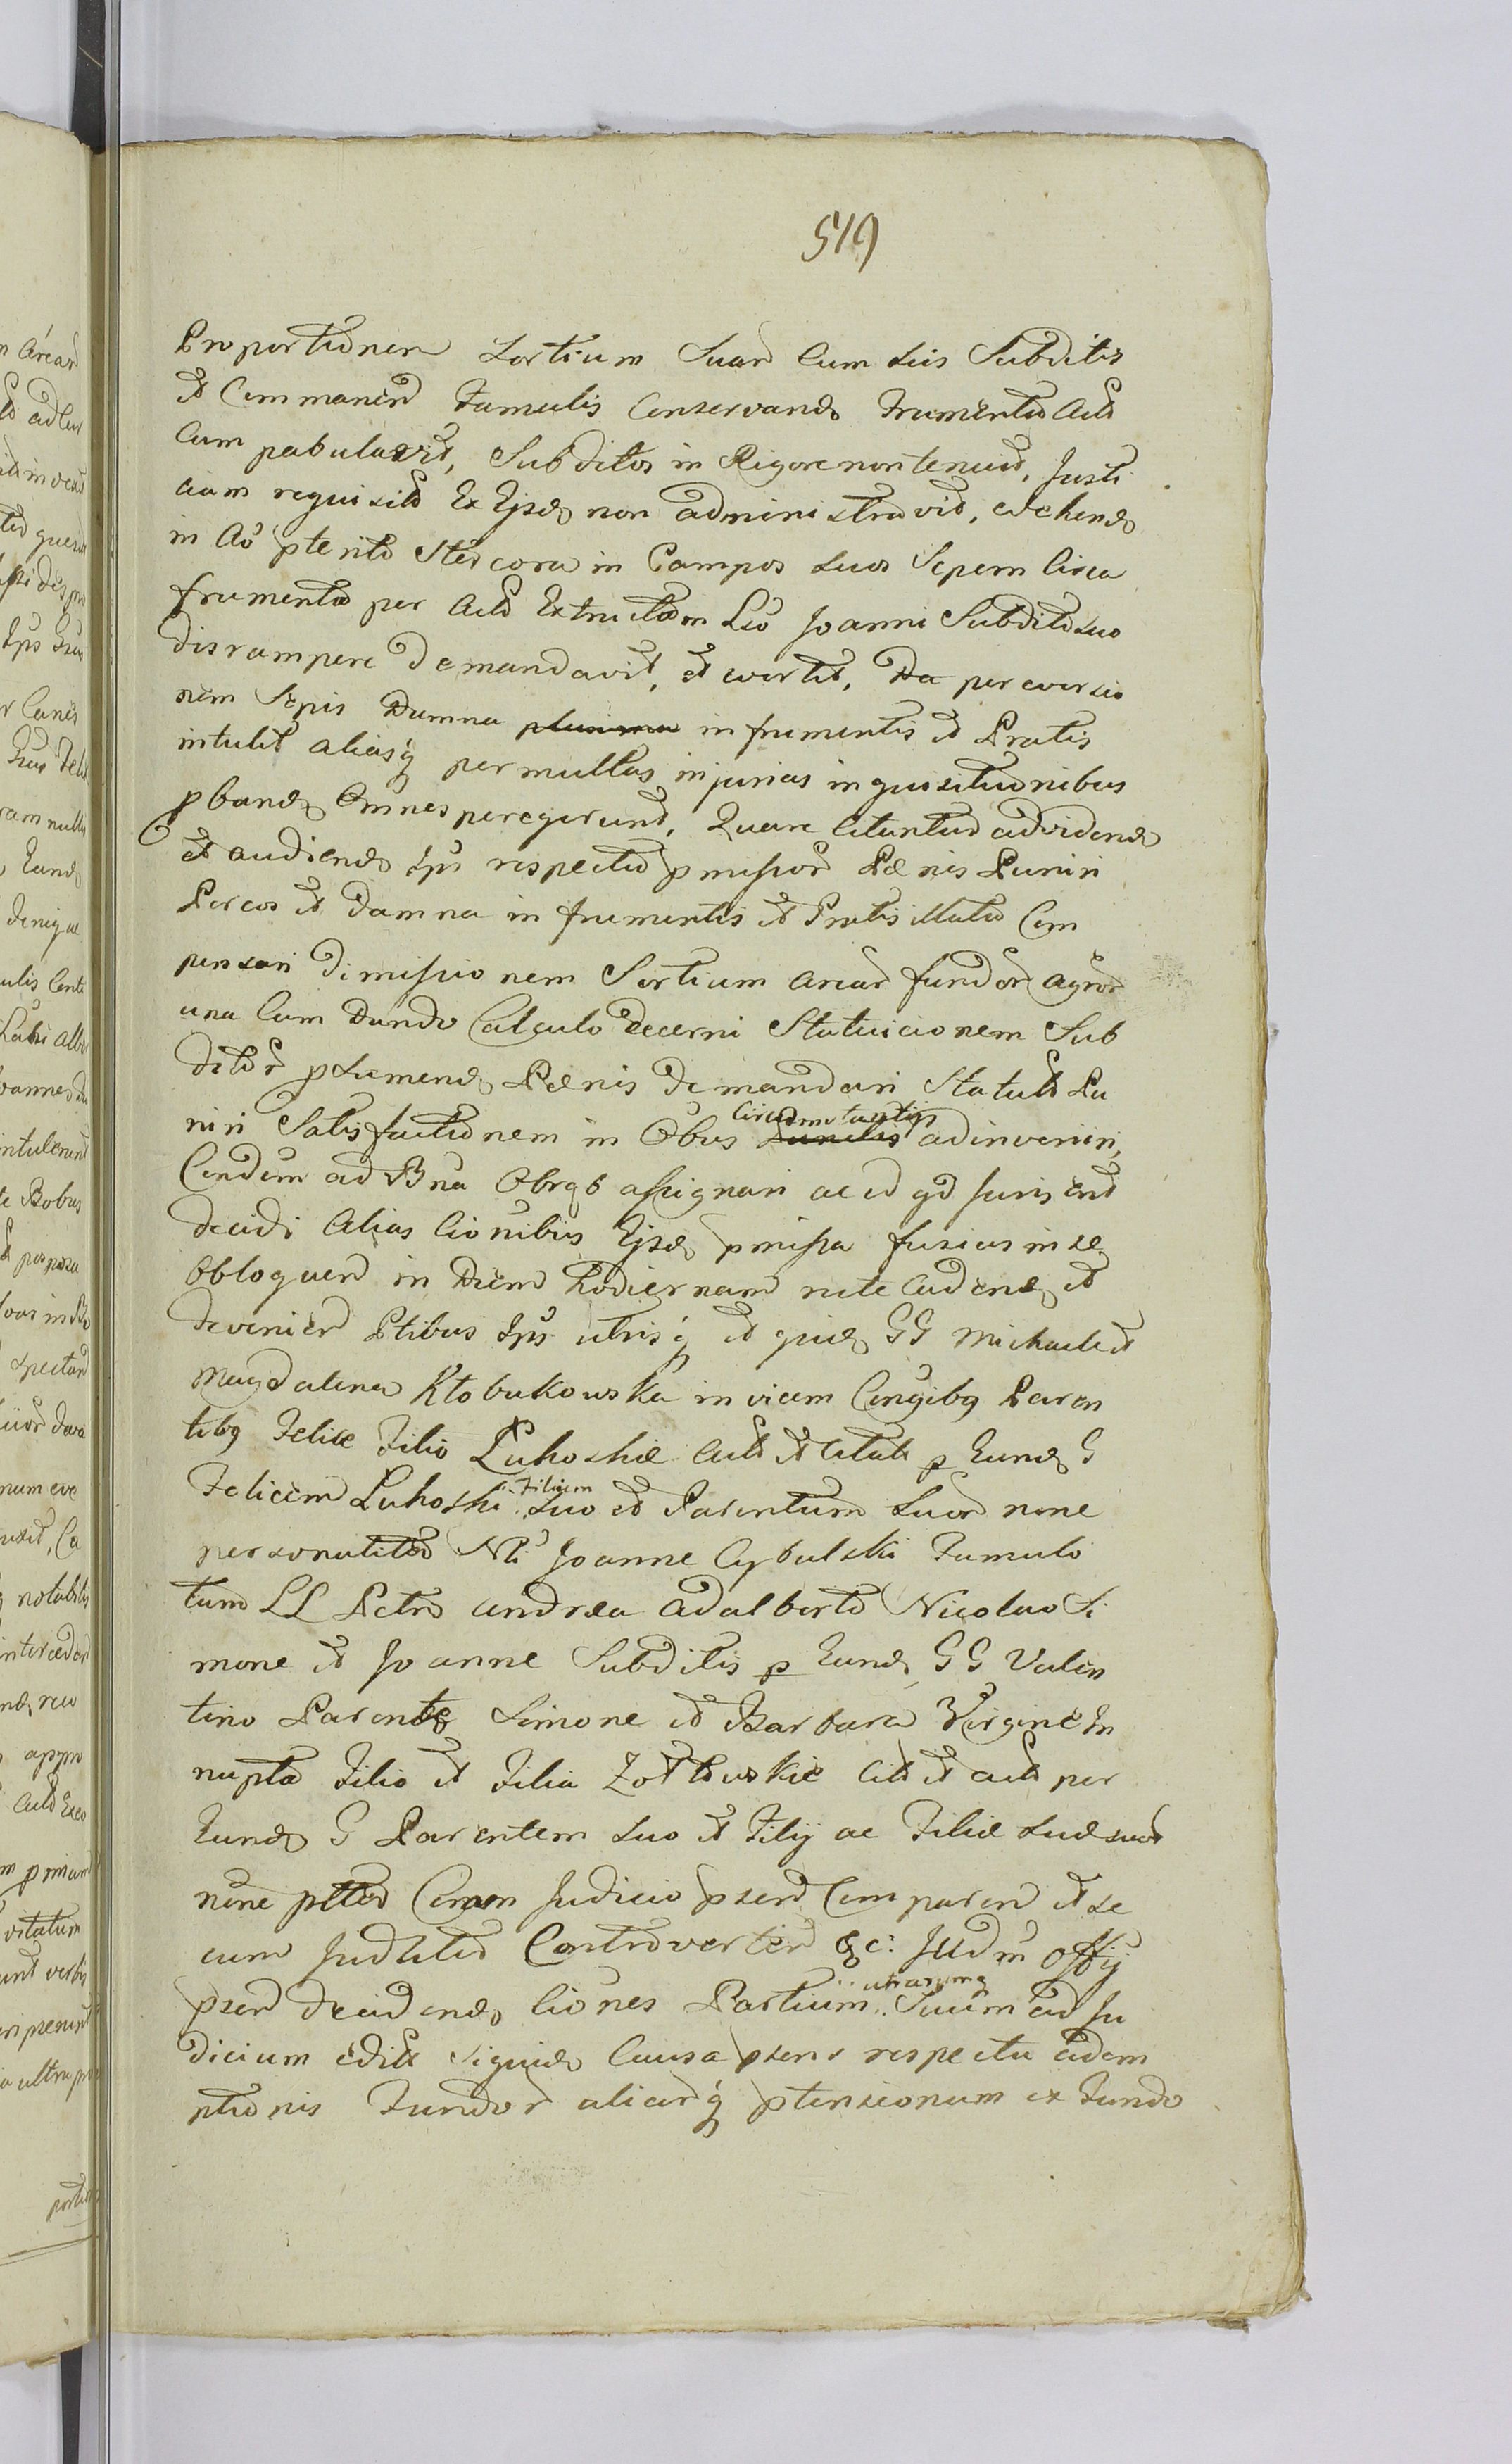 519
Proportionem Sortium Suar Cum Suis Subditis
et Commanen Famulis Conservando Frumentis Act
Cum pabulavit, Subditos in Rigore non tenuit, Justi
ciam requisit Ex Ejsd non administravit, evehend
in Ao pterito Stercora in Campos Suos Sepem Circa
frumenta per Act Extructam Lio Joanni Subdito suo
disrumpere demandavit, et evertit, Da per eversio
nem Sepis Damna plurima in frumentis et Pratis
intulit aliasq permultas injurias inquisitionibus
pband Omnes peregerunt, Quare Citantur ad vidend
et audiend Ips respectu pmissor Pænis Puniri
Per eos et Damna in frumentis et Pratis illata Com
pensari Dimissionem Sortium arear fundor agror
una Cum Dando Calculo decerni Statuicionem Sub
ditor p Sumend Pænis demandari Statut Pu
niri Satisfactionem in Obus Circumstantijs adinveniri,
Condem ad Bna Obrqb assignari ac id qd Juris erit
decidi Alias Cionibus Ejsd pmissa fusius in se
Obloquen in Diem hodiernam rite Cadend et
devenien Ptibus Ips utrisq et quid GG Michaele et
Magdalena Kłobukowska invicem Conjgibq Paren
tibq Felice Filio Łukoskie Actt et Citatt p Eund G
Felicem Łukoski Filium Suo et Parentum Suor none
personaliter Nli Joanne Cybulski Famulo
tum LL Petro Andrea Adalberto Nicolao Si
mone et Joanne Subditis p Eund GG Valen
tino Parente Simone et Barbara Virgine In
nupta Filio et Filia Zołtowskie Citt et actt per
Eund G Parentem Suo et Filij ac Filiæ Suæ suor
none pltter Coram Judicio psenti Comparen et Se
cum Judtliter Controverten &c: Judm Offij
psen decidend Ciones Partium utrarumq Suum ad Ju
dicium edit Siquid Causa psens respectu adem
ptionis Fundor aliarq ptensionum ex Fundo